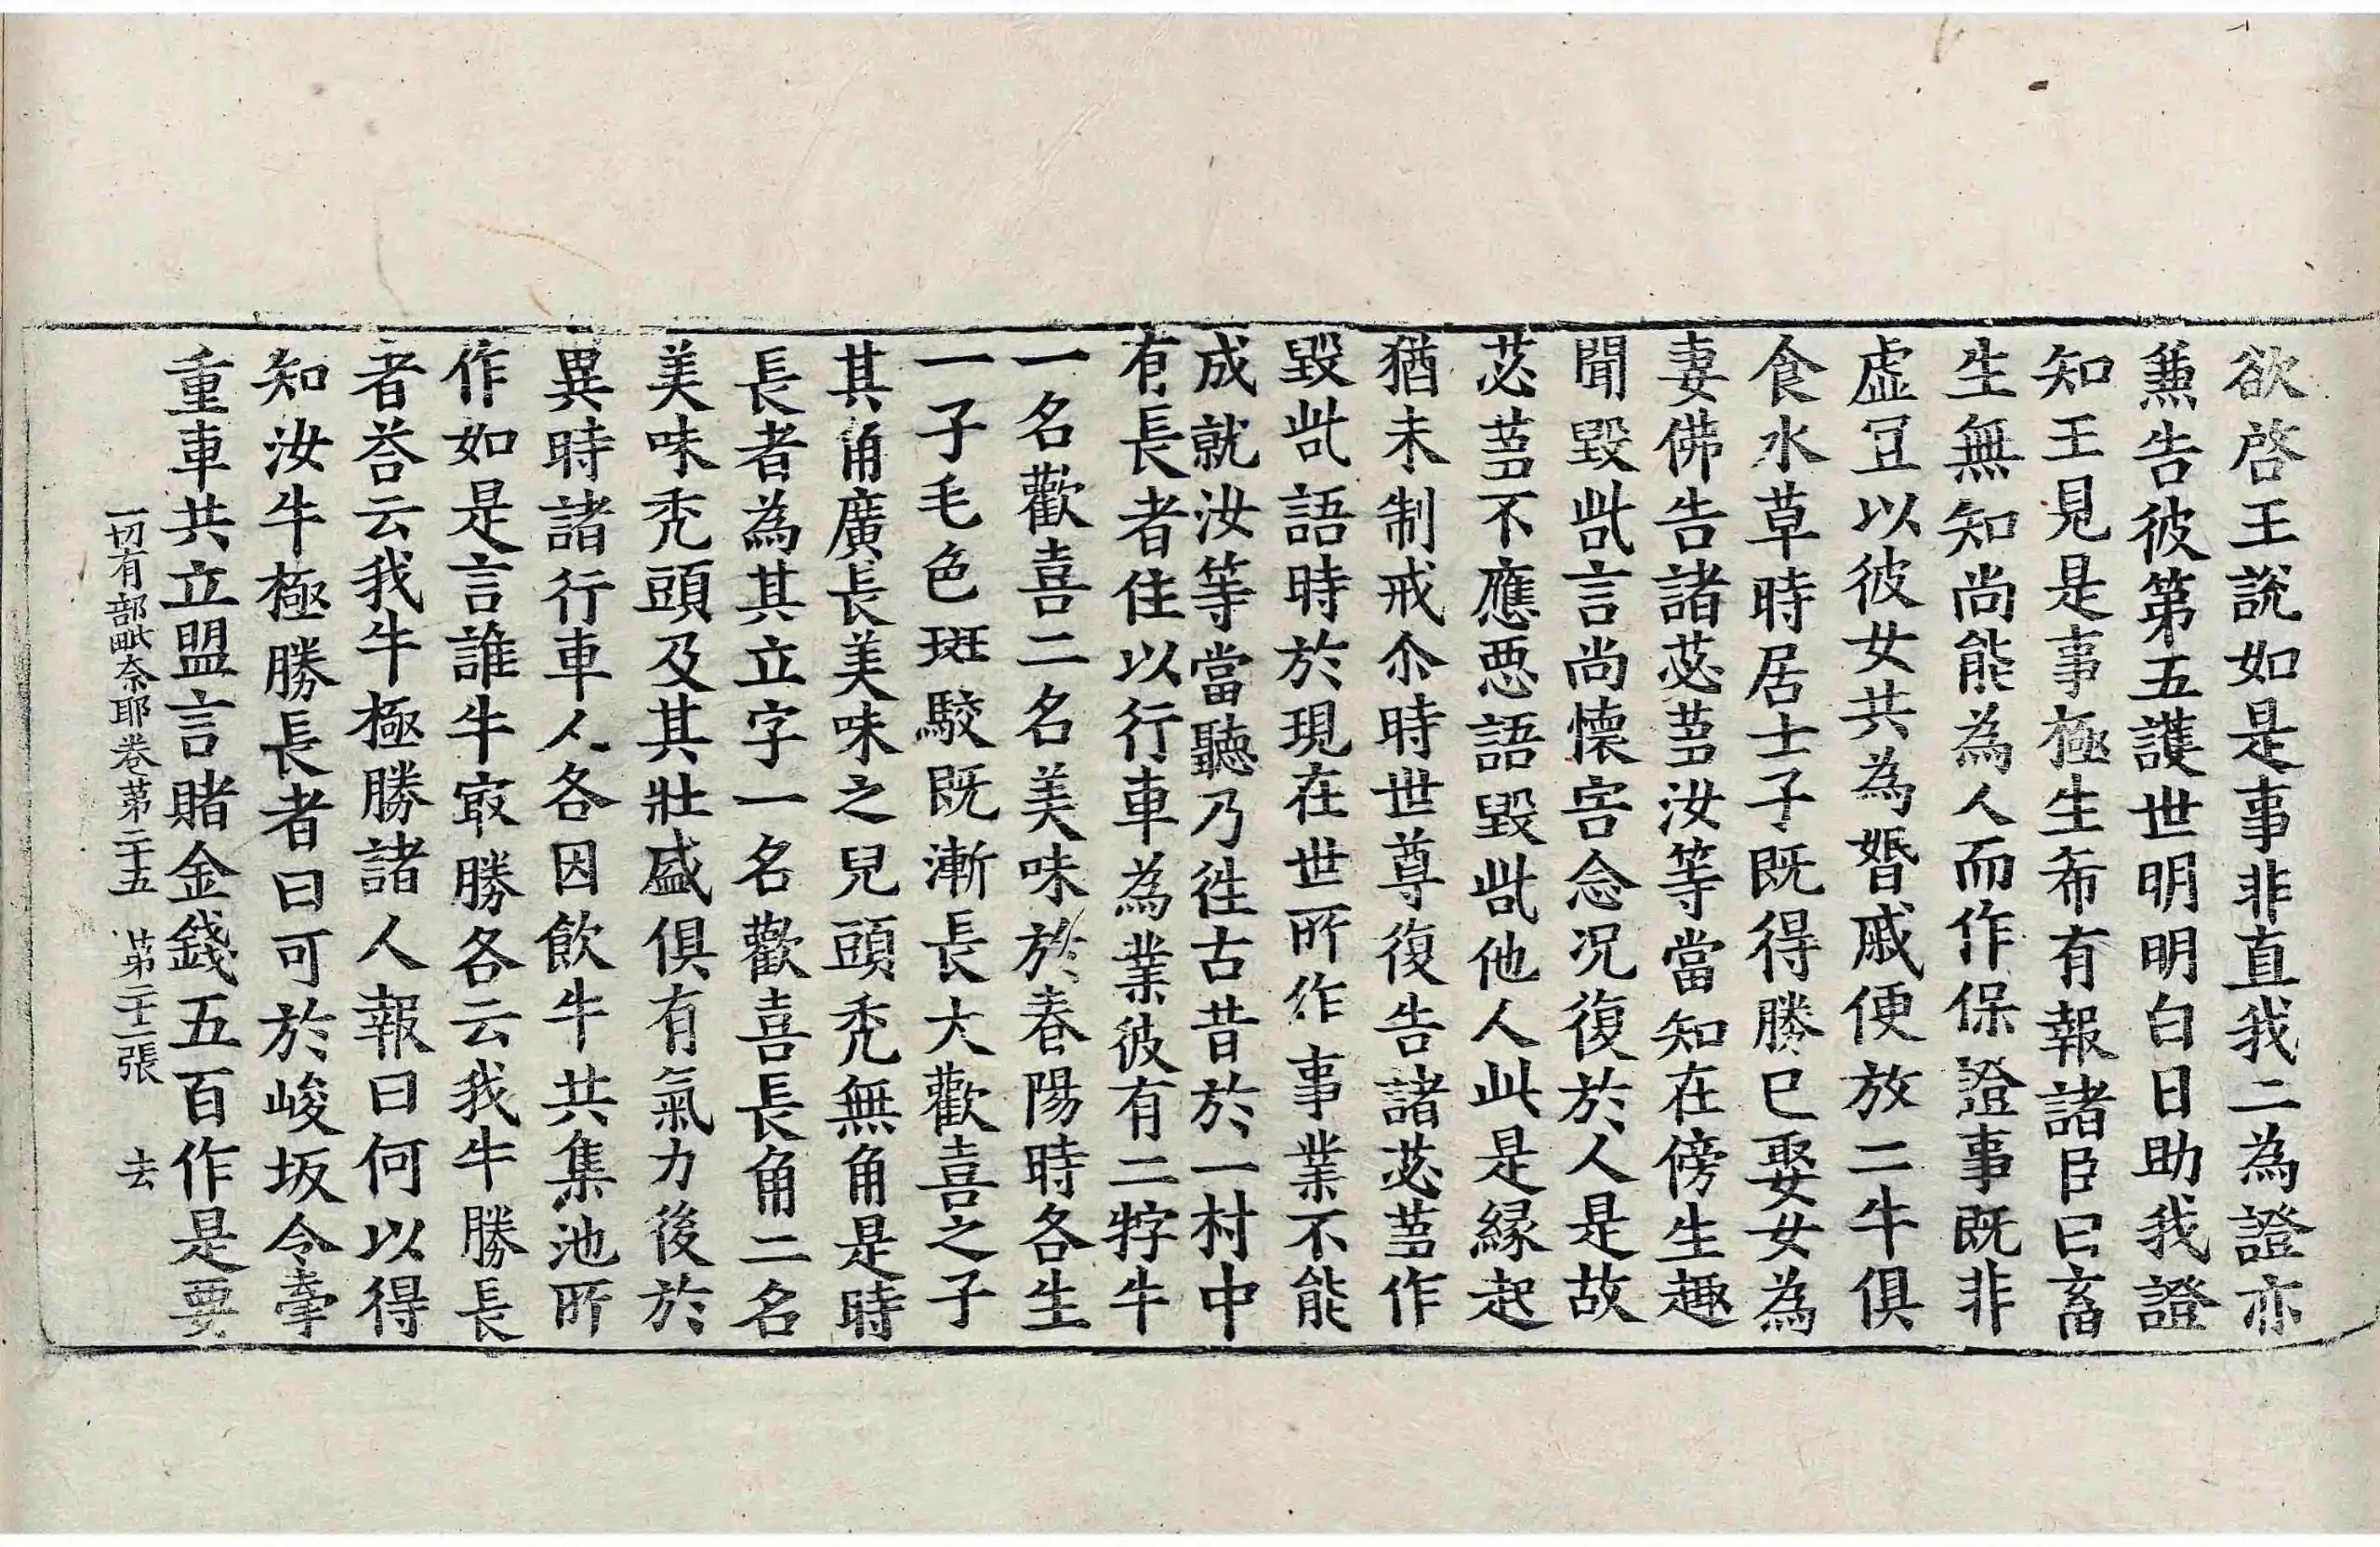 欲啓王說如是事非直我二為證亦
𠔥告彼第五護世明明白日助我證
知王見是事極生希有報諸臣曰畜
生無知尚能為人而作保證事既非
虛冝以彼女共為婚戚便放二牛俱
食水草時居士子既得勝已娶女為
妻佛告諸苾蒭汝等當知在傍生趣
聞毀呰言尚懷害念況復於人是故
苾蒭不應惡語毀呰他人此是緣起
猶未制戒尒時世尊復告諸苾蒭作
毀呰語時於現在世所作事業不能
成就汝等當聽乃往古昔於一村中
有長者住以行車為業彼有二牸牛
一名歡喜二名美味於春陽時各生
一子毛色斑駮既漸長大歡喜之子
其角廣長美味之兒頭禿無角是時
長者為其立字一名歡喜長角二名
美味禿頭及其壯盛俱有氣力後於
異時諸行車人各因飲牛共集池所
作如是言誰牛㝡勝各云我牛勝長
者荅云我牛極勝諸人報曰何以得
知汝牛極勝長者曰可於峻坂令牽
重車共立盟言賭金錢五百作是要
一切有部毗奈耶卷第二十五　第二十二張　去